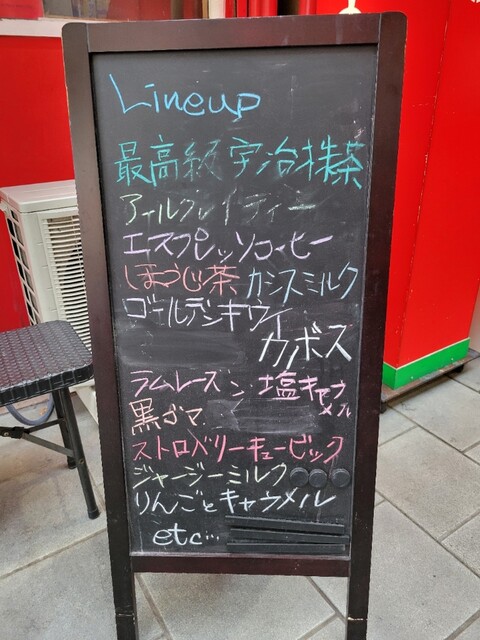 Lineup
最高級宇治抹茶
アールグレイティー
エスプレッソコーヒー
ほうじ茶 カシスミルク
ゴールデンキウイ
カボス
ラムレーズン 塩キャラメル
黒ゴマ
ストロベリーキュービック
ジャージーミルク
りんごとキャラメル
etc…